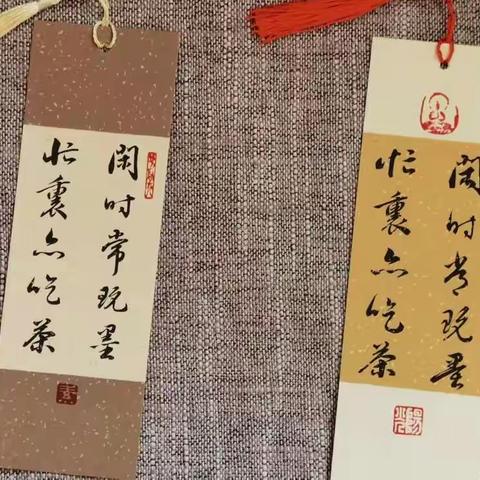 闲时常玩墨
忙裏亦吃茶
闲时常玩墨
忙裏亦吃茶